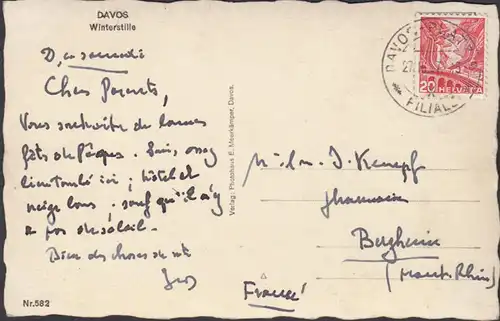 DAVOS
Winterstille
D, ce samedi
Chers Parents,
Vous souhaite de bonnes
fêts de Pâques. Suis
ici ; hôtel et
neige bons ; sauf qu'il n'y
a pas de soleil.
Bien des choses de
Verlag: Photohaus E. Meerkämper, Davos.
Nr.582
DAVOS
FILIALE
20 HELVETIA
J. Kempf
pharmacie
Bergheim
(Haut-Rhin)
France